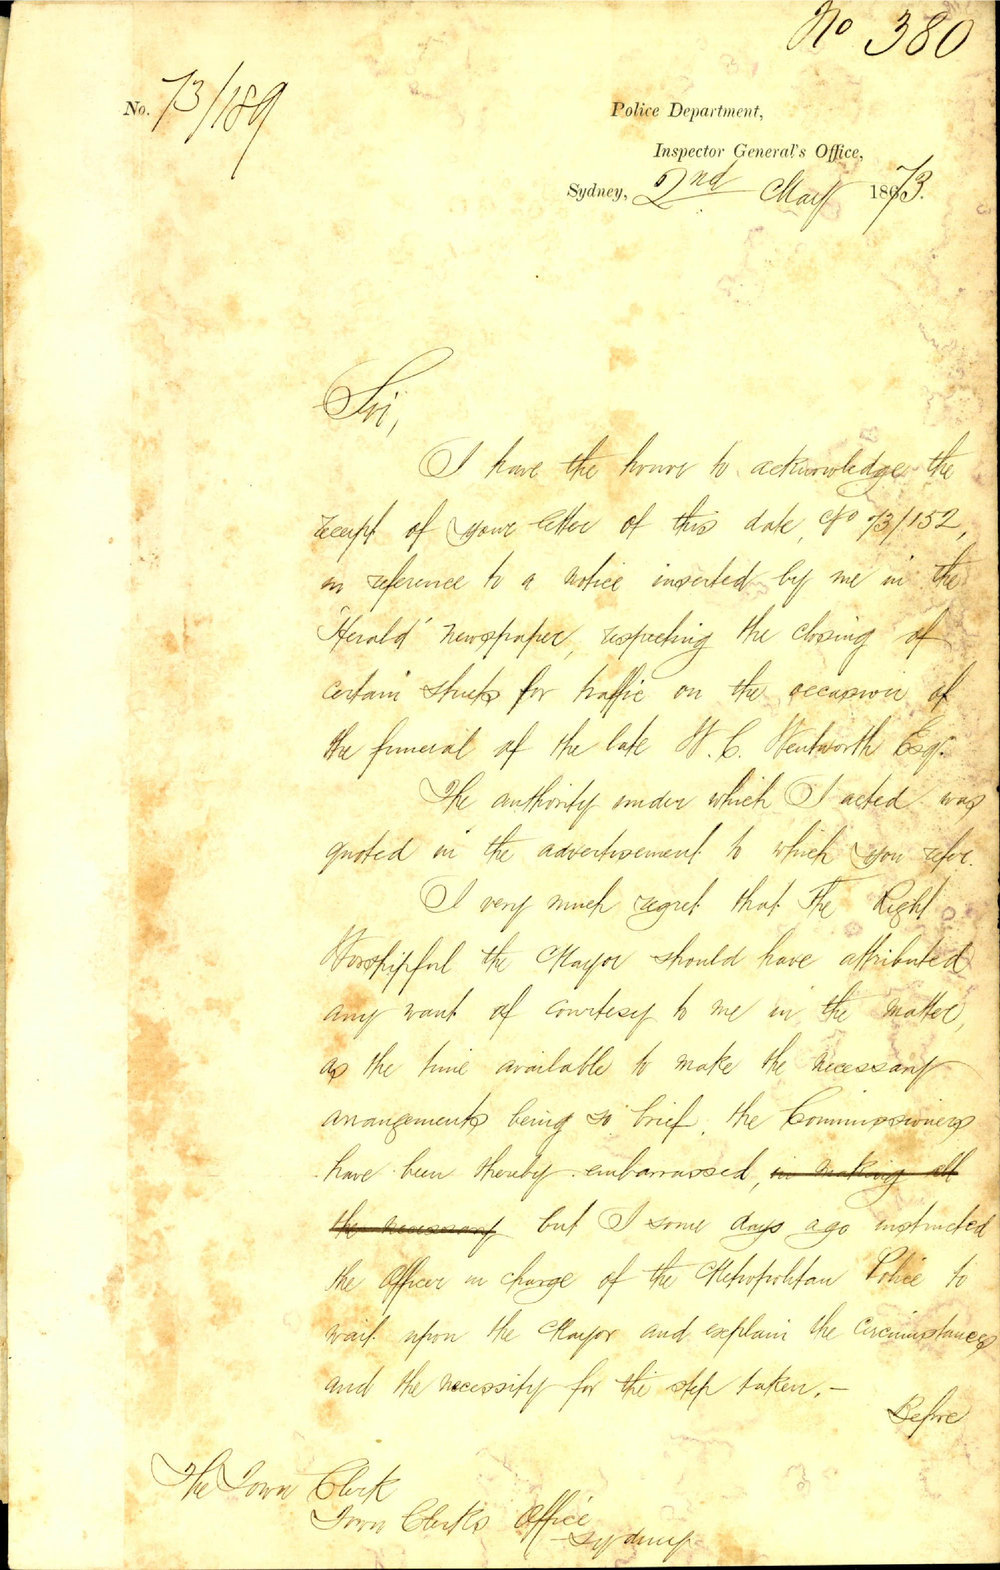 No 380
No. 73/189
Police Department,
Inspector General's Office,
Sydney, 2nd May 1873.
Sir,
I have the honor to acknowledge the
receipt of your letter of this date, No 73/152,
in reference to a notice inserted by me in the
"Herald" newspaper, respecting the closing of
certain streets for traffic on the occasion of
the funeral of the late W. C. Wentworth Esq.
The authority under which I acted was
quoted in the advertisement to which you refer.
I very much regret that The Right
Worshipful the Mayor should have attributed
any want of courtesy to me in the matter,
as the time available to make the necessary
arrangements being so brief, the Commissioners
have been thereby embarrassed, in making all
the necessary but I some days ago instructed
the Officer in charge of the Metropolitan Police to
wait upon the Mayor and explain the circumstances
and the necessity for the step taken.—
Before
The Town Clerk
Town Clerks Office
Sydney